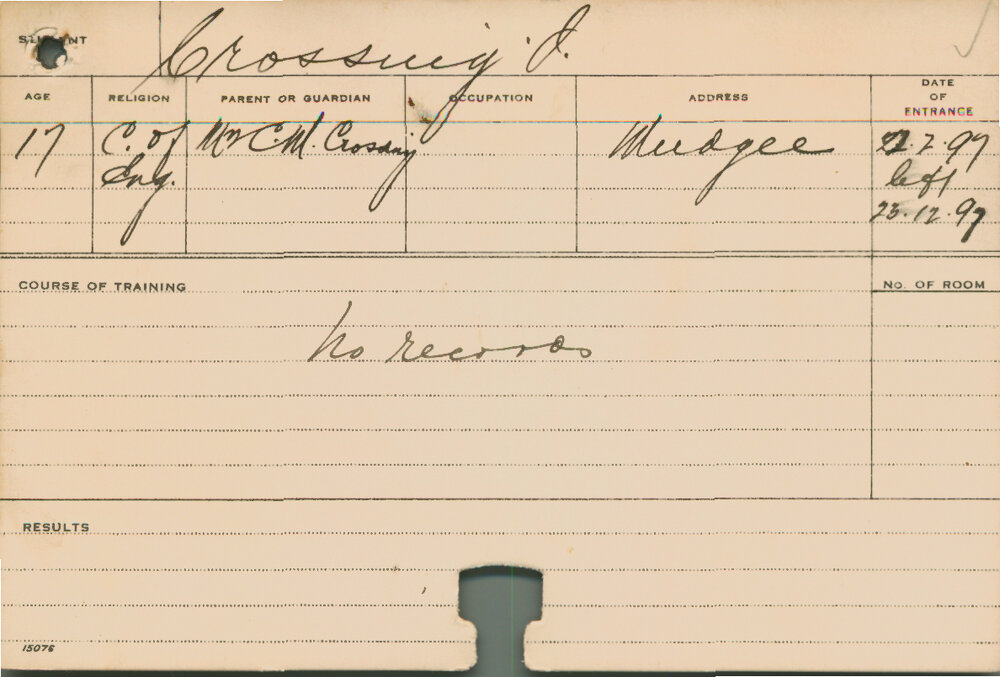 STUDENT Crossing. J.
AGE RELIGION PARENT OR GUARDIAN OCCUPATION ADDRESS DATE OF ENTRANCE
17 C. of Eng. Mr C. M. Crossing Mudgee 2.97
left
23.12.97
COURSE OF TRAINING No. OF ROOM
No records
RESULTS
15076